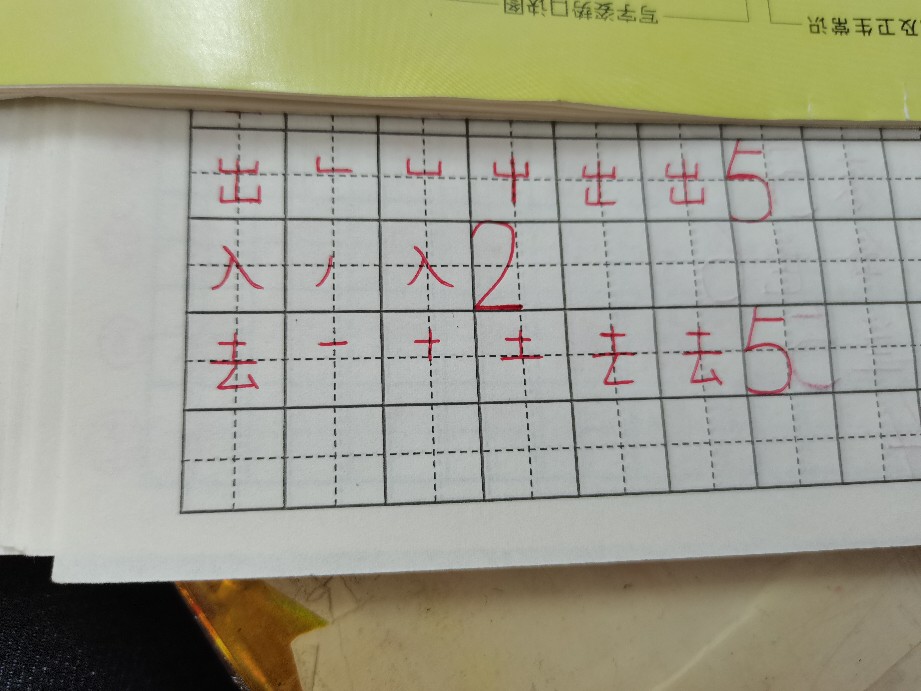 及卫生常识
写字姿势口诀图
出 ㇗ 凵 屮 出 5
入 丿 入 2
去 一 十 土 去 5